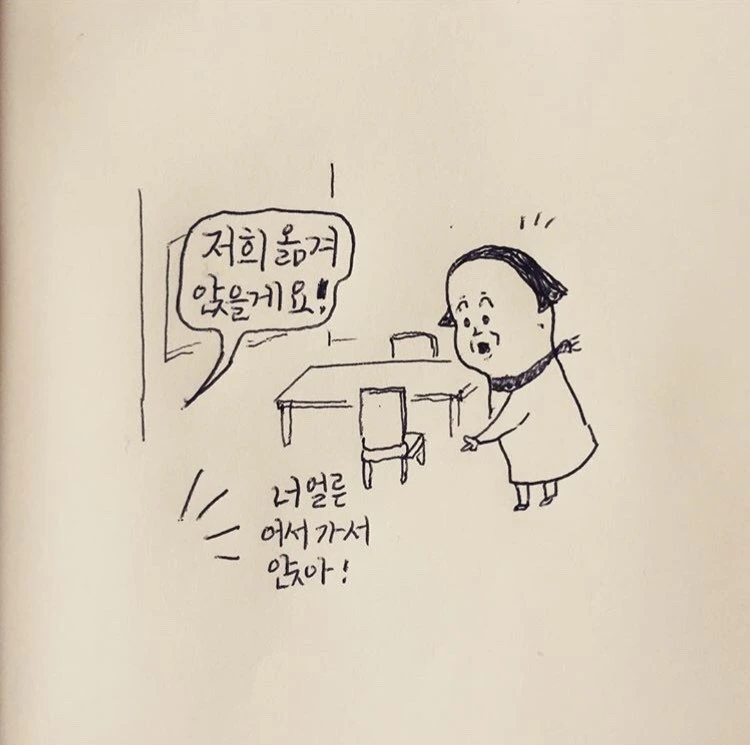 저희 옮겨
앉을게요!
너 얼른
어서 가서
앉아!